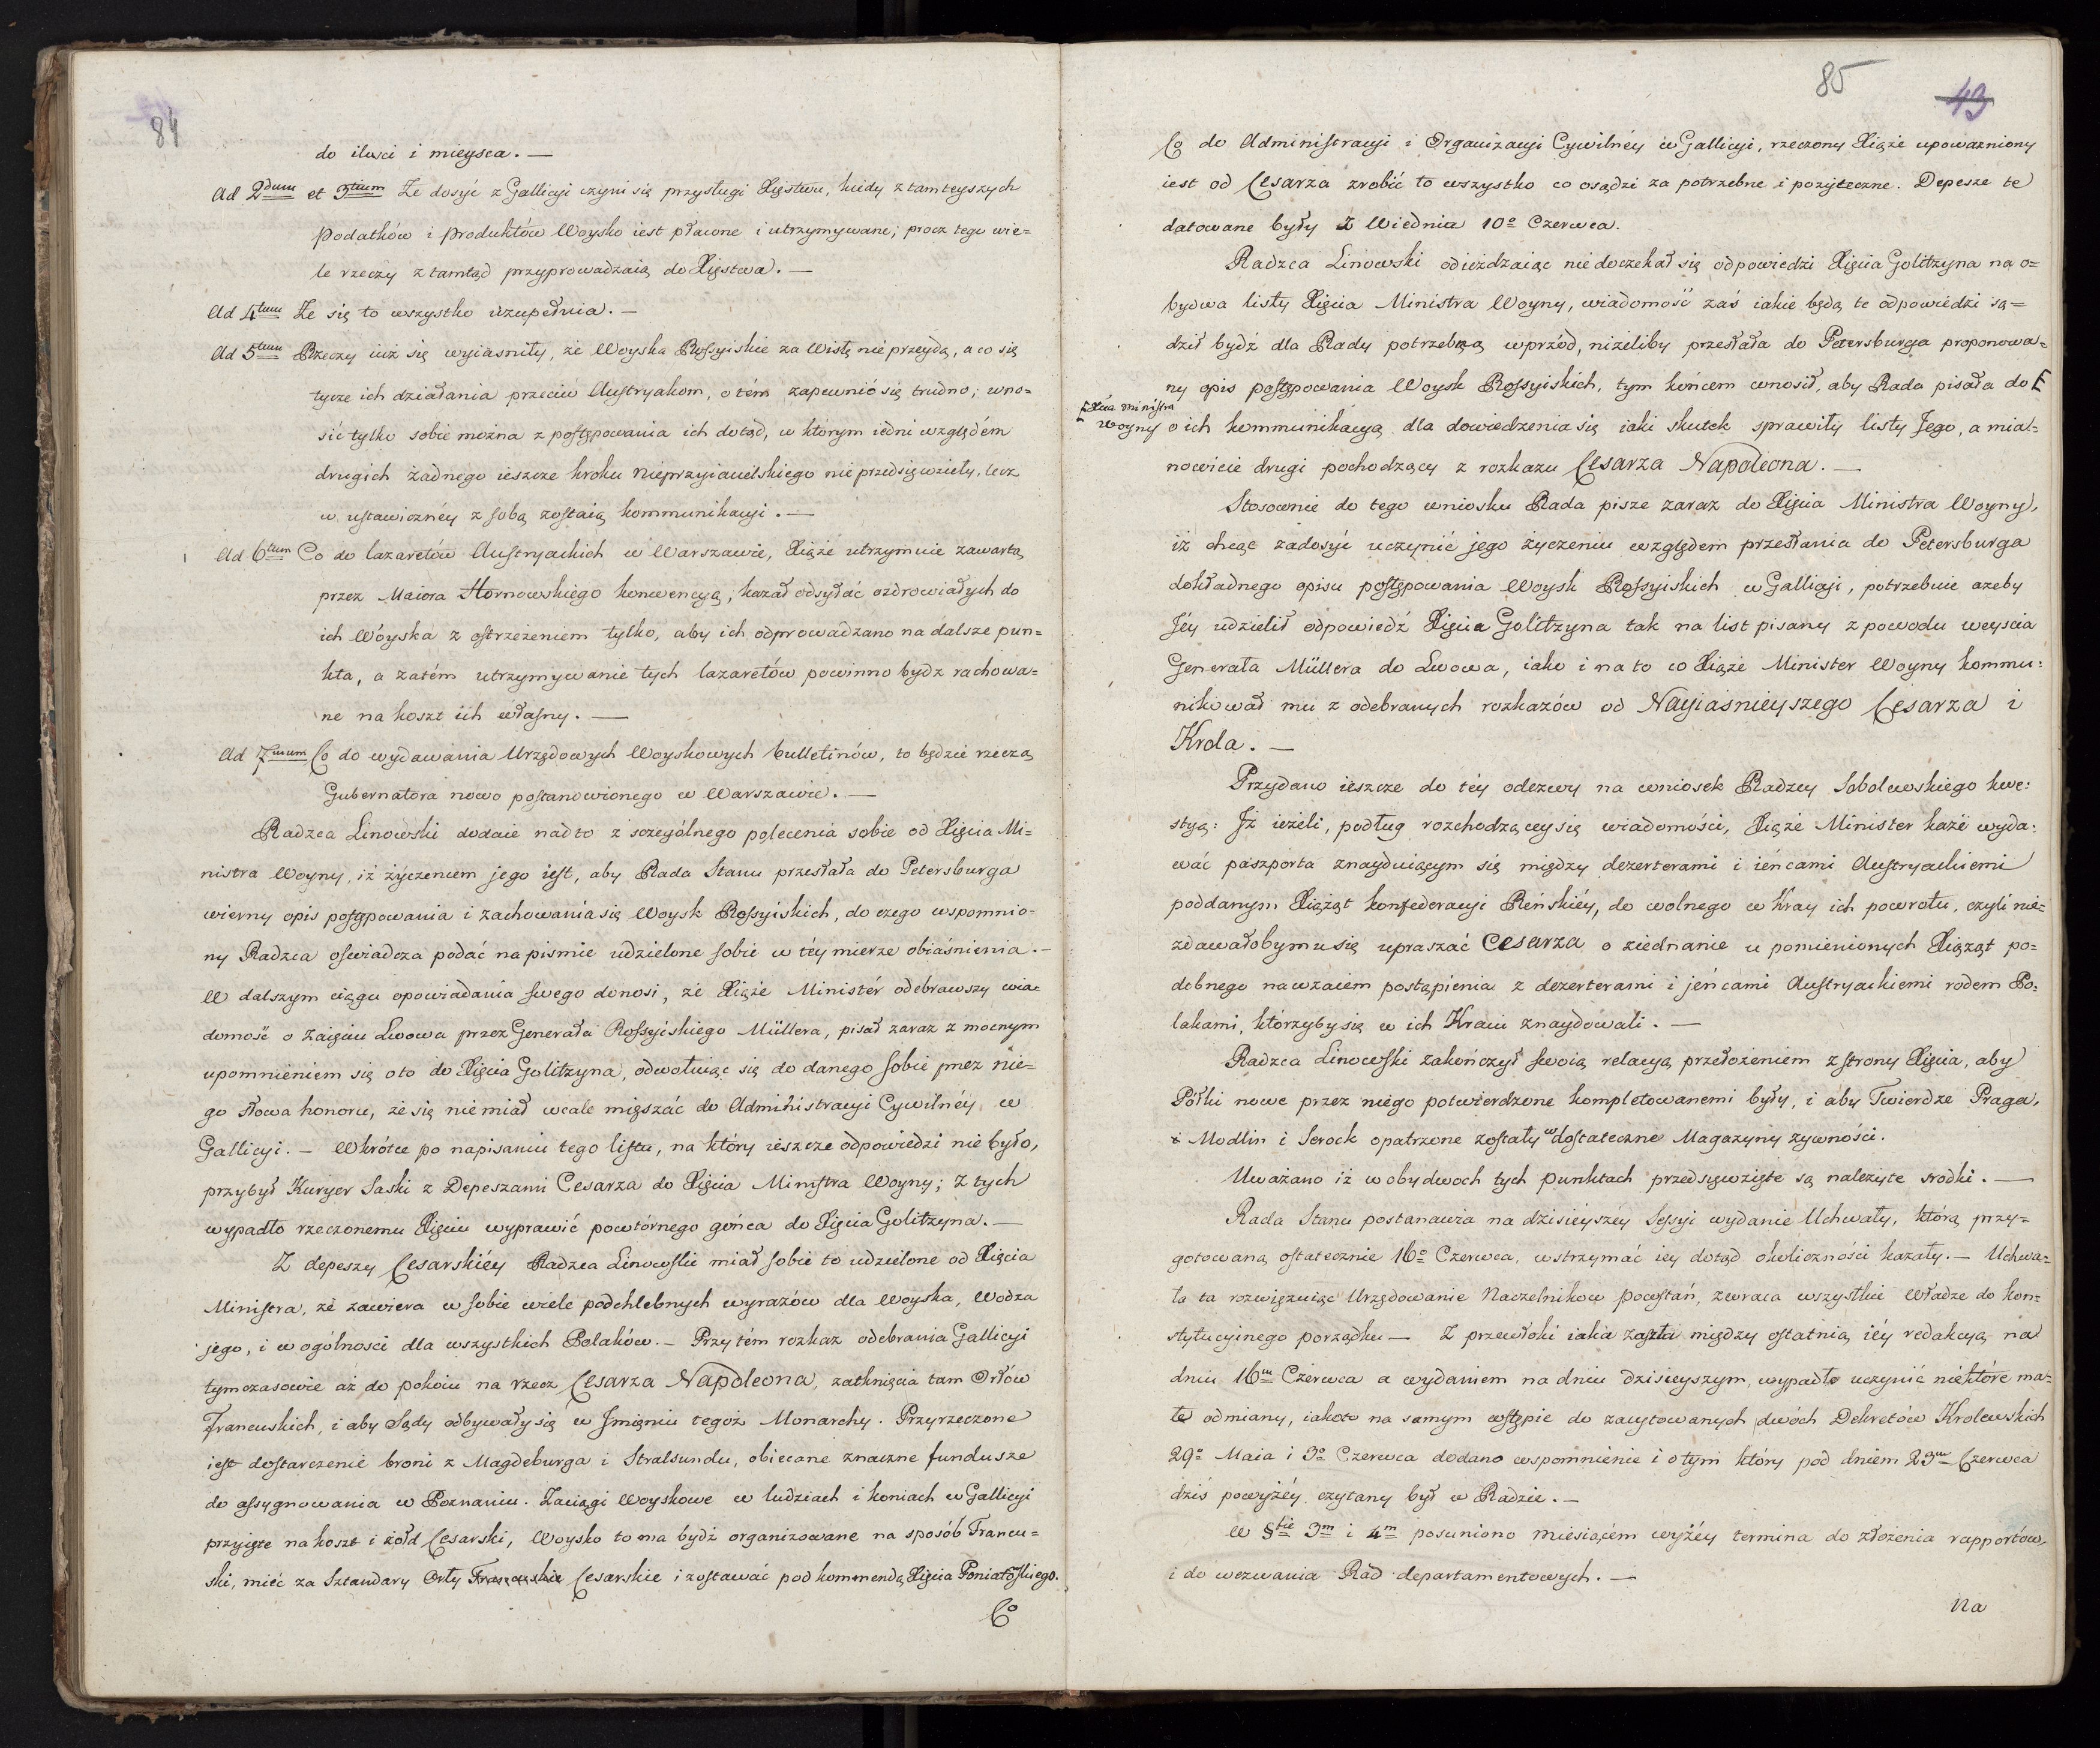 84
do ilości i mieysca. —
Ad 2dum et 3tium Że dosyć z Gallicyi czyni się przysługi Xięstwu, kiedy z tamteyszych
Podatków i Produktów Woysko iest płacone i utrzymywane; procz tego wie=
le rzeczy z tamtąd przyprowadzaią do Xięstwa. —
Ad 4tum Że się to wszystko uzupełnia. —
Ad 5tum Rzeczy iuż się wyiasniły, że Woyska Rossyiskie za Wisłę nie przeydą, a co się
tycze ich działania przeciw Austryakom, o tém zapewnić się trudno; wno=
sić tylko sobie można z postępowania ich dotąd, w którym iedni względem
drugich żadnego ieszcze kroku nieprzyiacielskiego nie przedsięwzieły, lecz
w ustawicznéy z sobą zostaią kommunikacyi. —
Ad 6tum Co do lazaretów Austryackich w Warszawie, Xiąże utrzymuie zawartą
przez Maiora Hornowskiego konwencyą, kazał odsyłać ozdrowiałych do
ich Woyska z ostrzeżeniem tylko, aby ich odprowadzano na dalsze pun=
kta, a zatém utrzymywanie tych lazaretów powinno bydz rachowa=
ne na koszt ich własny. —
Ad 7mum Co do wydawania Urzędowych Woyskowych bulletinów, to będzie rzeczą
Gubernatora nowo postanowionego w Warszawie. —
Radzca Linowski dodaie nadto z szczególnego polecenia sobie od Xięcia Mi=
nistra Woyny, iż życzeniem jego iest, aby Rada Stanu przesłała do Petersburga
wierny opis postępowania i zachowania się Woysk Rossyiskich, do czego wspomnio=
ny Radzca oswiadcza podać na pismie udzielone sobie w téy mierze obiaśnienia. —
W dalszym ciągu opowiadania swego donosi, że Xiąże Ministér odebrawszy wia=
domość o Zaięciu Lwowa przez Generała Rossyiskiego Müllera, pisał zaraz z mocnym
upomnieniem się o to do Xięcia Golitzyna, odwołuiąc się do danego sobie przez nie=
go słowa honoru, że się nie miał wcale mięszać do Administracyi Cywilnéy w
Gallicyi. — Wkrótce po napisaniu tego listu, na który ieszcze odpowiedzi nie było,
przybył Kuryer Saski z Depeszami Cesarza do Xięcia Ministra Woyny; Z tych
wypadło rzeczonemu Xięciu wyprawić powtórnego gońca do Xięcia Golitzyna. —
Z depeszy Cesarskiéy Radzca Linowski miał sobie to udzielone od Xięcia
Ministra, że zawiera w sobie wiele podchlebnych wyrazów dla Woyska, Wodza
jego, i w ogólnosci dla wszystkich Polaków. — Przytém rozkaz odebrania Gallicyi
tymczasowie aż do pokoiu na rzecz Cesarza Napoleona, zatknięcia tam Orłów
Francuskich, i aby Sądy odbywały się w Imieniu tegoż Monarchy. Przyrzeczone
iest dostarczenie broni z Magdeburga i Stralsundu, obiecane znaczne fundusze
do assygnowania w Poznaniu. Zaciągi Woyskowe w ludziach i koniach w Gallicyi
przyięte na koszt i żołd Cesarski, Woysko to ma bydź organizowane na sposób Francu=
ski, mieć za Sztandary Orły Francuskie Cesarskie i zostawać pod kommendą Xięcia Poniatowskiego.
Co
85
43
Co do Administracyi i Organizacyi Cywilnéy w Gallicyi, rzeczony Xiąże upoważniony
iest od Cesarza zrobić to wszystko co osądzi za potrzebne i pożyteczne. Depesze te
datowane były z Wiednia 10o Czerwca.
Radzca Linowski odieżdzaiąc nie doczekał się odpowiedzi Xięcia Golitzyna na o=
bydwa listy Xięcia Ministra Woyny, wiadomość zaś iakie będą te odpowiedzi są=
dził bydź dla Rady potrzebną wprzód, niżeliby przesłała do Petersburga proponowa=
ny opis postępowania Woysk Rossyiskich, tym końcem wnosił, aby Rada pisała do
Xcia Ministra
Woyny o ich kommunikacyą dla dowiedzenia się iaki skutek sprawiły listy Jego, a mia=
nowicie drugi pochodzący z rozkazu Cesarza Napoleona. —
Stosownie do tego wniosku Rada pisze zaraz do Xięcia Ministra Woyny,
iż chcąc zadosyć uczynić jego życzeniu względem przesłania do Petersburga
dokładnego opisu postępowania Woysk Rossyiskich w Gallicyi, potrzebuie ażeby
Jéy udzielił odpowiedź Xięcia Golitzyna tak na list pisany z powodu weyscia
Generała Müllera do Lwowa, iako i na to co Xiąże Minister Woyny kommu=
nikował mu z odebranych rozkazów od Nayiaśnieyszego Cesarza i
Krola. —
Przydano ieszcze do téy odezwy na wniosek Radzcy Sobolewskiego kwe=
styą: Iż ieżeli, podług rozchodzącey się wiadomości, Xiąże Minister każe wyda=
wać paszporta znayduiącym się między dezerterami i ieńcami Austryackiemi
poddanym Xiążąt konfederacyi Reńskiéy, do wolnego w Kray ich powrotu, czyli nie=
zdawałoby mu się upraszać Cesarza o ziednanie u pomienionych Xiążąt po=
dobnego nawzaiem postąpienia z dezerterami i jeńcami Austryackiemi rodem Po=
lakami, którzyby się w ich Kraiu znaydowali. —
Radzca Linowski zakończył swoią relacyą przełożeniem z strony Xięcia, aby
Półki nowe przez niego potwierdzone kompletowanemi były, i aby Twierdze Praga,
i Modlin i Serock opatrzone zostały w dostateczne Magazyny żywności.
Uważano iż w obydwoch tych punktach przedsięwzięte są należyte srodki. —
Rada Stanu postanawia na dzisieyszéy Sessyi wydanie Uchwały, którą przy=
gotowaną ostatecznie 16o Czerwca, wstrzymać iey dotąd okoliczności kazały. — Uchwa=
ła ta rozwięzuiąc Urzędowanie Naczelnikow powstań, zwraca wszystkie Władze do kon=
stytucyinego porządku — Z przewłoki iaka zaszła między ostatnią iéy redakcyą na
dniu 16m Czerwca a wydaniem na dniu dzisieyszym, wypadło uczynić niektóre ma=
łe odmiany, iakoto na samym wstępie do zacytowanych dwóch Dekretów Krolewskich
29o Maia i 3o Czerwca dodano wspomnienie i o tym który pod dniem 23m Czerwca
dziś powyżéy czytany był w Radzie. —
W §fie 3m i 4m posuniono miesiącem wyżéy termina do złożenia rapportów,
i do wezwania Rad departamentowych. —
Na